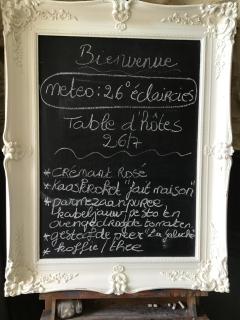 Bienvenue
meteo: 26° éclaircies
Table d'hôtes
26/7
* CRÉMANT ROSÉ
* KaasKroket "fait maison"
* parmezaanpuree
kabeljauw/pesto en
ovengedroogde tomaten
peer
* koffie/thee